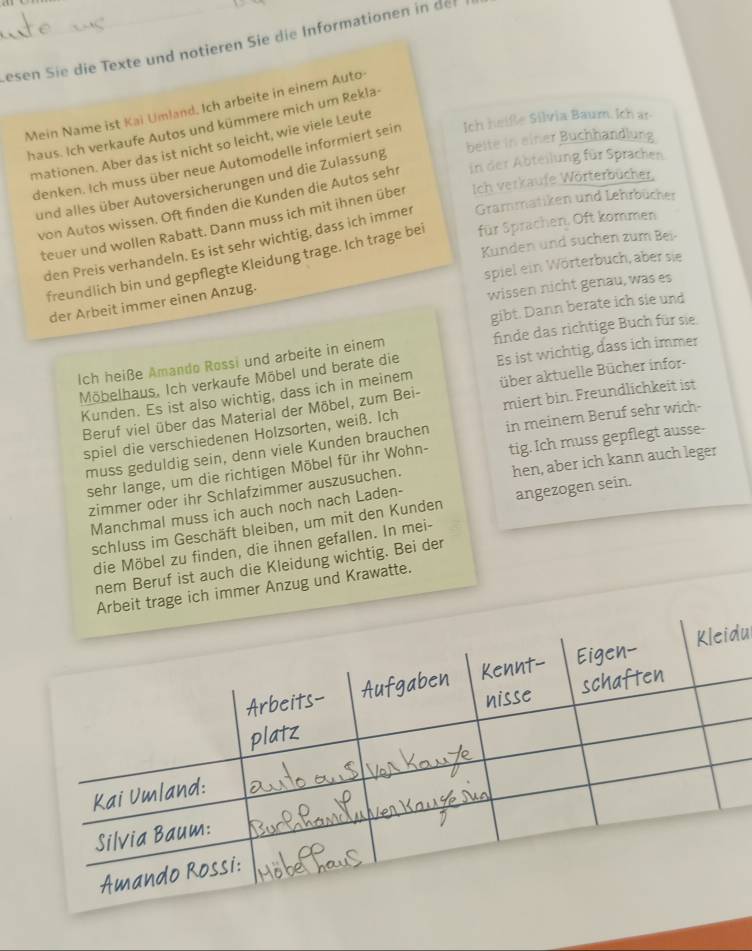 Lesen Sie die Texte und notieren Sie die Informationen in der
Mein Name ist Kai Umland. Ich arbeite in einem Auto-
haus. Ich verkaufe Autos und kümmere mich um Rekla-
mationen. Aber das ist nicht so leicht, wie viele Leute
denken. Ich muss über neue Automodelle informiert sein
und alles über Autoversicherungen und die Zulassung
von Autos wissen. Oft finden die Kunden die Autos sehr
teuer und wollen Rabatt. Dann muss ich mit ihnen über
den Preis verhandeln. Es ist sehr wichtig, dass ich immer
freundlich bin und gepflegte Kleidung trage. Ich trage bei
der Arbeit immer einen Anzug.
Ich heiße Silvia Baum. Ich ar-
beite in einer Buchhandlung
in der Abteilung für Sprachen.
Ich verkaufe Wörterbücher,
Grammatiken und Lehrbücher
für Sprachen. Oft kommen
Kunden und suchen zum Bei-
spiel ein Wörterbuch, aber sie
wissen nicht genau, was es
gibt. Dann berate ich sie und
finde das richtige Buch für sie.
Es ist wichtig, dass ich immer
über aktuelle Bücher infor-
miert bin. Freundlichkeit ist
in meinem Beruf sehr wich-
tig. Ich muss gepflegt ausse-
hen, aber ich kann auch leger
angezogen sein.
Ich heiße Amando Rossi und arbeite in einem
Möbelhaus. Ich verkaufe Möbel und berate die
Kunden. Es ist also wichtig, dass ich in meinem
Beruf viel über das Material der Möbel, zum Bei-
spiel die verschiedenen Holzsorten, weiß. Ich
muss geduldig sein, denn viele Kunden brauchen
sehr lange, um die richtigen Möbel für ihr Wohn-
zimmer oder ihr Schlafzimmer auszusuchen.
Manchmal muss ich auch noch nach Laden-
schluss im Geschäft bleiben, um mit den Kunden
die Möbel zu finden, die ihnen gefallen. In mei-
nem Beruf ist auch die Kleidung wichtig. Bei der
Arbeit trage ich immer Anzug und Krawatte.
Arbeits-
platz
Aufgaben
Kennt-
nisse
Eigen-
schaften
Kleidu
Kai Umland: auto aus verkaufe
Silvia Baum: Buchhandlu verkaufe
Amando Rossi: Möbelhaus